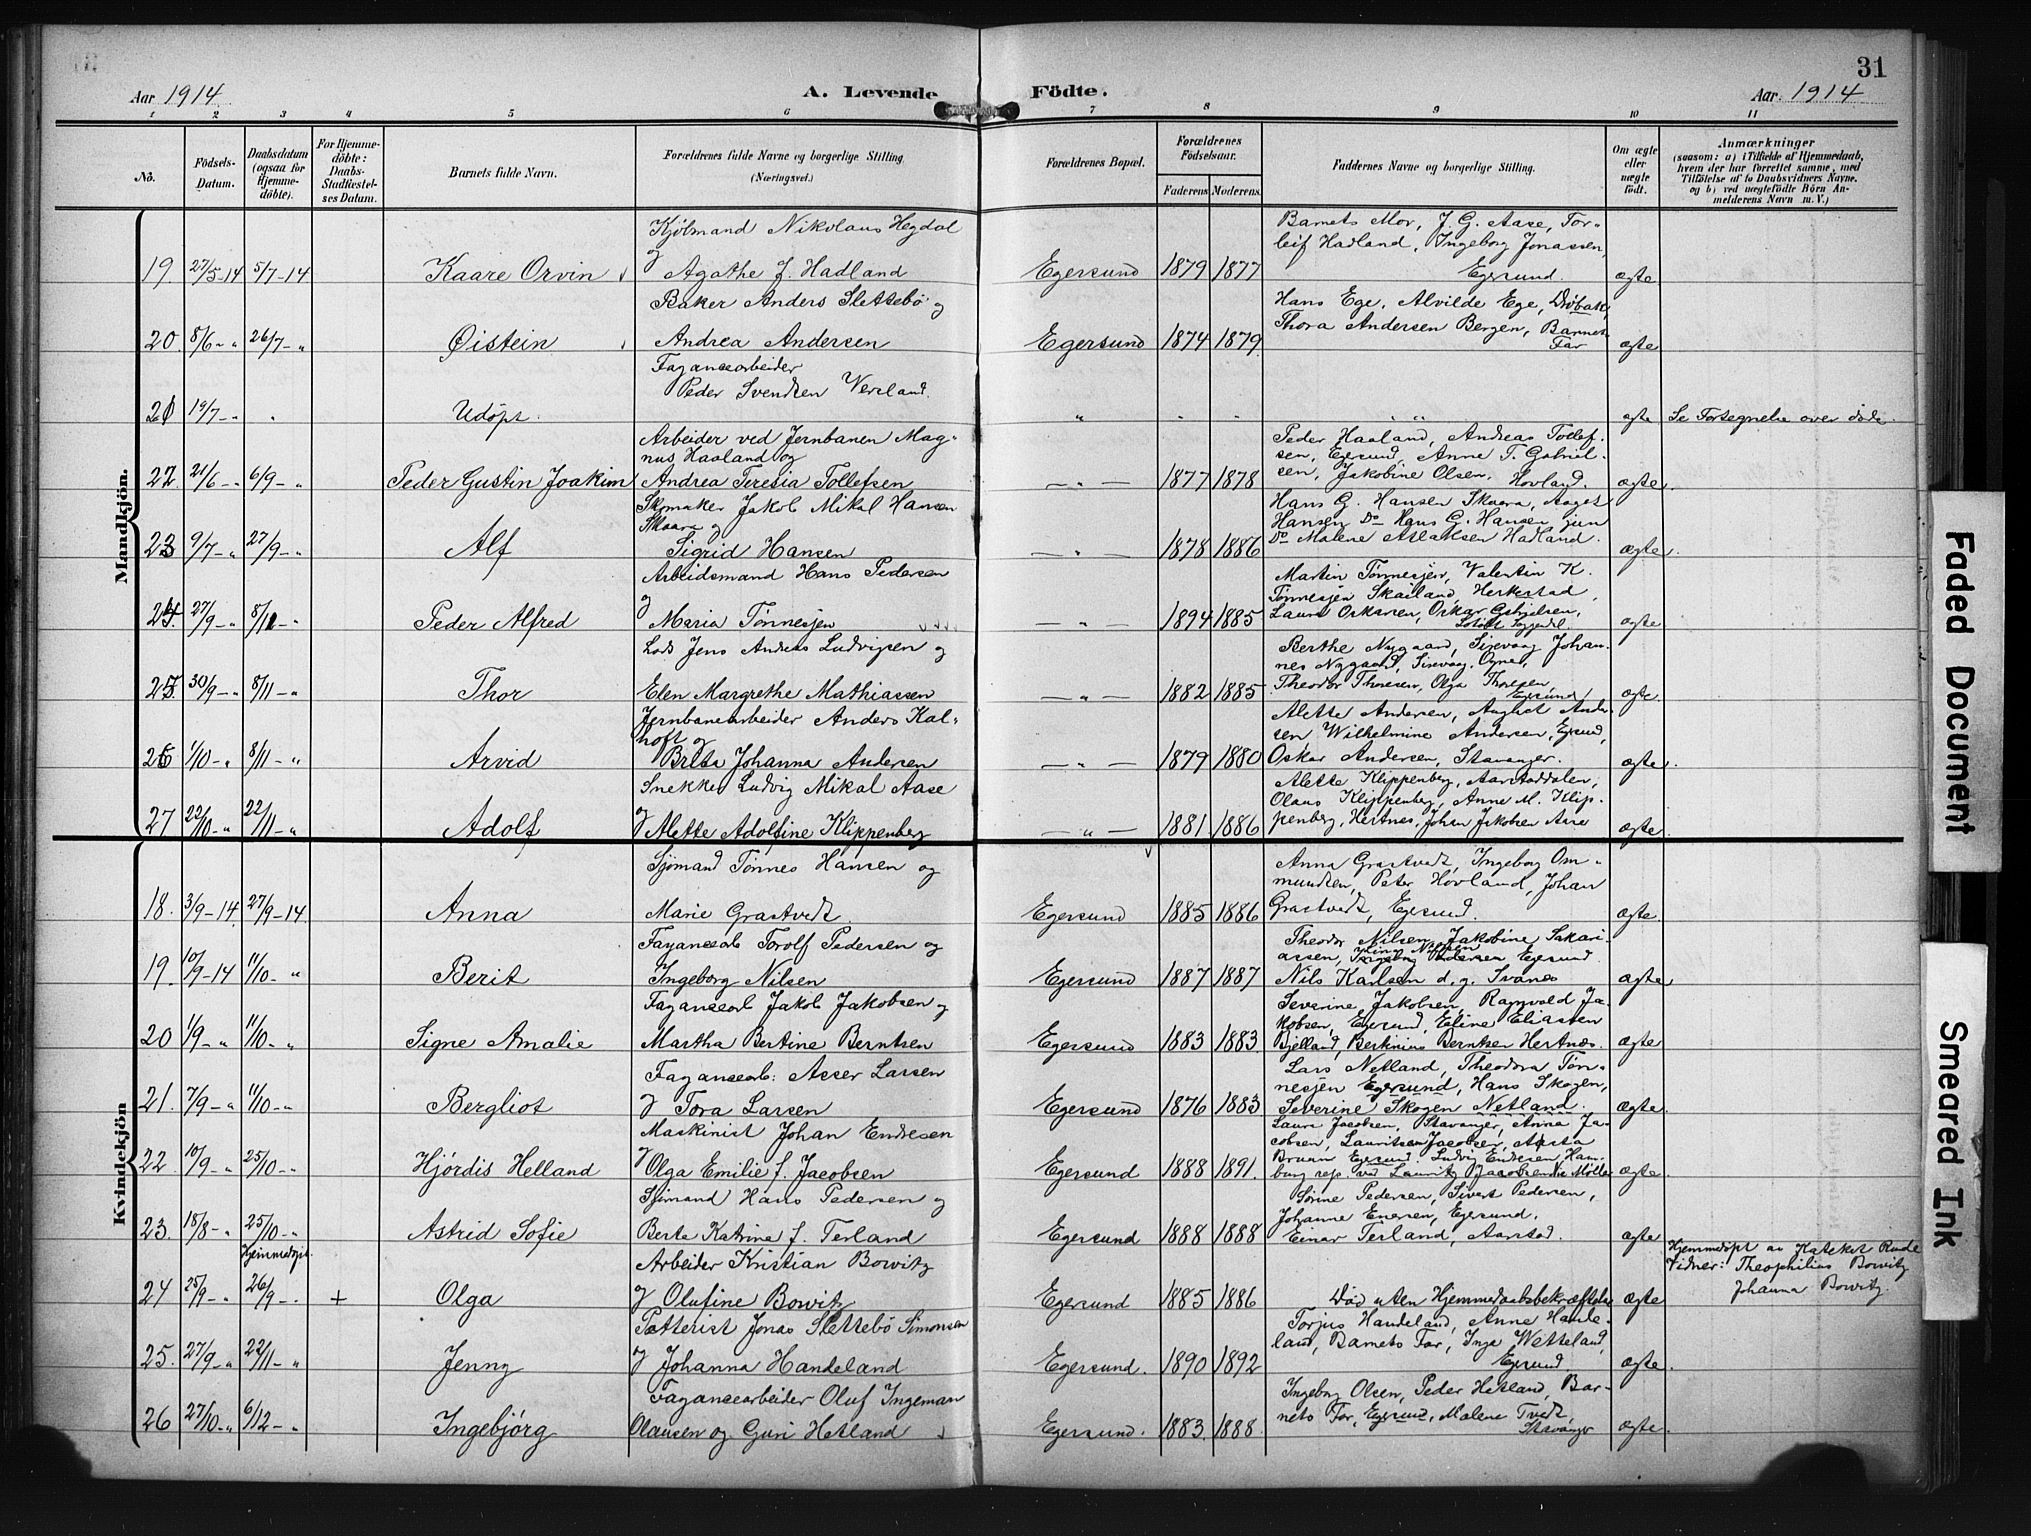 31
Aar 1914
A. Levende Födte.
Aar. 1914
1 2 3 4 5 6 7 8 9 10 11
No.
Födsels-Datum.
Daabsdatum (ogsaa for Hjemme-döbte).
For Hjemme-döbte: Daabs-Stadfæstel-ses Datum.
Barnets fulde Navn.
Forældrenes fulde Navne og borgerlige Stilling.
(Næringsvei.)
Forældrenes Bopæl.
Forældrenes Födselsaar.
Faderens Moderens.
Faddernes Navne og borgerlige Stilling.
Om ægte eller uægte födt.
Anmærkninger
(saasom: a) i Tilfælde af Hjemmedaab, hvem der har forrettet samme, med Tilföielse af to Daabsvidners Navne. og b) ved uægtefödte Börn An-melderens Navn m. V.)
Mandkjön.
Kjølmand Nikolaus Hegdal
og
19. 27/5-14 5/7-14 Kaare Orvin Agathe f. Hadland Egersund 1879 1877
Barnets Mor, J. G. Aase, Tor-
leif Hadland, Ingeborg Jonassen,
Egersund. ægte
Baker Anders Slettebö og
20. 8/6 - " 26/7 - " Øistein Andrea Andersen Egersund 1874 1879.
Hans Ege, Alvilde Ege, Drøbak,
Thora Andersen Bergen, Barnets
Far ægte
Fayancearbeider
Peder Svendsen Versland.
21 19/7 - " " Udöpt. " " " " " ægte Se Fortegnelse over döde.
Arbeider ved Jernbanen Mag-
nus Haaland og
22. 21/6 - " 6/9 - " Peder Gustin Joakim Andrea Teresia Tollefsen — " — 1877 1878
Peder Haaland, Andreas Tollef-
sen, Egersund, Anne T. Gabriel-
sen, Jakobine Olsen, Hovland. ægte.
Skomaker Jakob Mikal Hansen
Skaara og
23 9/7 - " 27/9 - " Alf Sigrid Hansen — " — 1878 1886
Hans G. Hansen Skaara, Aagot
Hansen Do Hans G. Hansen jun
Do Malene Aslaksen Hadland. ægte.
Arbeidsmand Hans Pedersen
og
24. 27/9 - " 8/11 - " Peder Alfred Maria Tönnesjen — " — 1894 1885
Martin Tönnesjen, Valentin K.
Tönnesjen Skailand, Herkestad,
Laura Oskarsen, Oskar
ægte
Lods Jens Andreas Ludvigsen og
25. 30/9 - " 8/11 - " Thor Elen Margrethe Mathiassen — " — 1882 1885.
Berthe Nygaard, Sirevaag, Johan-
nes Nygaard, Sirevaag, Ogne,
Theodor Thoresen, Olga Thoresen,
Egersund ægte
Jernbanearbeider Anders Kal-
hoft og
26 1/10 - " 8/11 - " Arvid Brita Johanna Andersen — " — 1879 1880
Alette Andersen, August Ander-
sen Wilhelmine Andersen, Egsund,
Oskar Andersen, Stavanger. ægte.
Snekker Ludvig Mikal Aase
27 22/10 - " 22/11 - " Adolf og Alette Adolfine Klippenberg — " — 1881 1886
Alette Klippenberg, Aarstaddalen,
Olaus Klippenberg, Anne M. Klip-
penberg, Hertnes, Johan Jakobsen Aase ægte.
Kvindekjön
Sjömand Tönnes Hansen og
18. 3/9-14. 27/9-14. Anna Marie Grastvedt. Egersund 1885 1886
Anna Grastvedt, Ingeborg Om-
mundsen, Peter Hovland, Johan
Grastvedt, Egersund. ægte.
Fayancearb Torolf Pedersen og
19. 10/9-14 11/10 - " Berit Ingeborg Nilsen Egersund 1887 1887
Theodor Nilsen, Jakobine Sakari-
assen, Pedersen Egersund.
Nils Karlsen d. y. Svanes ægte
Fayancearb Jakob Jakobsen og
20 1/9 - " 11/10 - " Signe Amalie Martha Bertine Berntsen Egersund 1883 1883.
Severine Jakobsen, Ragnvald Ja-
kobsen, Egersund, Eline Eliassen
Bjelland, Bertinius Berntsen Hertnæs. ægte.
Fayancearb: Asser Larsen
21. 7/9 - " 11/10 - " Bergliot og Tora Larsen Egersund 1876 1883
Lars Netland, Theodora Tön-
nesjen Egersund, Hans Skogen,
Severine Skogen Netland. ægte.
Maskinist Johan Endresen
22. 10/9 - " 25/10 - " Hjördis Helland og Olga Emilie f. Jacobsen Egersund 1888 1891.
Laura Jacobsen, Stavanger, Anna Ja-
cobsen, Lauritsen Jacobsen, Aasta
Bruun Egersund. Ludvig Endresen Ham-
burg rep. ved Lauritz Jacobsen ægte
Sjömand Hans Pedersen og
23. 18/8 - " 25/10 - " Astrid Sofie Berta Katrine f. Terland Egersund 1888 1888
Sörine Pedersen, Sivert Pedersen,
Johanne Enersen, Egersund.
Einar Terland, Aarstad. ægte
Hjemmedöpt.
Arbeider Kristian Bowitz
24 25/9 - " 26/9 - " + Olga og Olufine Bowitz Egersund 1885 1886
Död uten Hjemmedaabsbekræftelse ægte
Hjemmedöpt av Kateket Rude
Vidner: Theophilius Bowitz
Johanna Bowitz.
Potterist Jonas Slettebö Simonsen
25. 27/9 - " 22/11 - " Jenny og Johanna Handeland Egersund. 1890 1892
Torjus Handeland, Anne Hande-
land, Barnets Far, Inga Wetteland,
Egersund ægte.
Fayancearbeider Oluf Ingeman
26 27/10 - " 6/12 - " Ingebjörg Olausen og Guri Hetland Egersund. 1883. 1888.
Ingeborg Olsen, Peder Hetland, Bar-
nets Far, Egersund, Malene Tvedt,
Stavanger ægte.
Faded Document
Smeared Ink